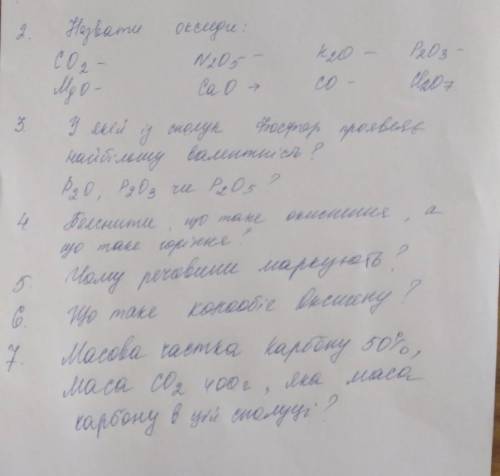 2. Назвати оксиди:
CO2 - N2O5 - K2O - P2O3 -
MgO - CaO → CO - Cl2O7
3. У якій із сполук Фосфор проявляє
найбільшу валентність?
P2O, P2O3 чи P2O5?
4 Пояснити, що таке окиснення, а
що таке горіння?
5. Чому речовини маркують?
6. Що таке колообіг Оксигену?
7. Масова частка Карбону 50%,
маса CO2 400г, яка маса
Карбону в цій сполуці?